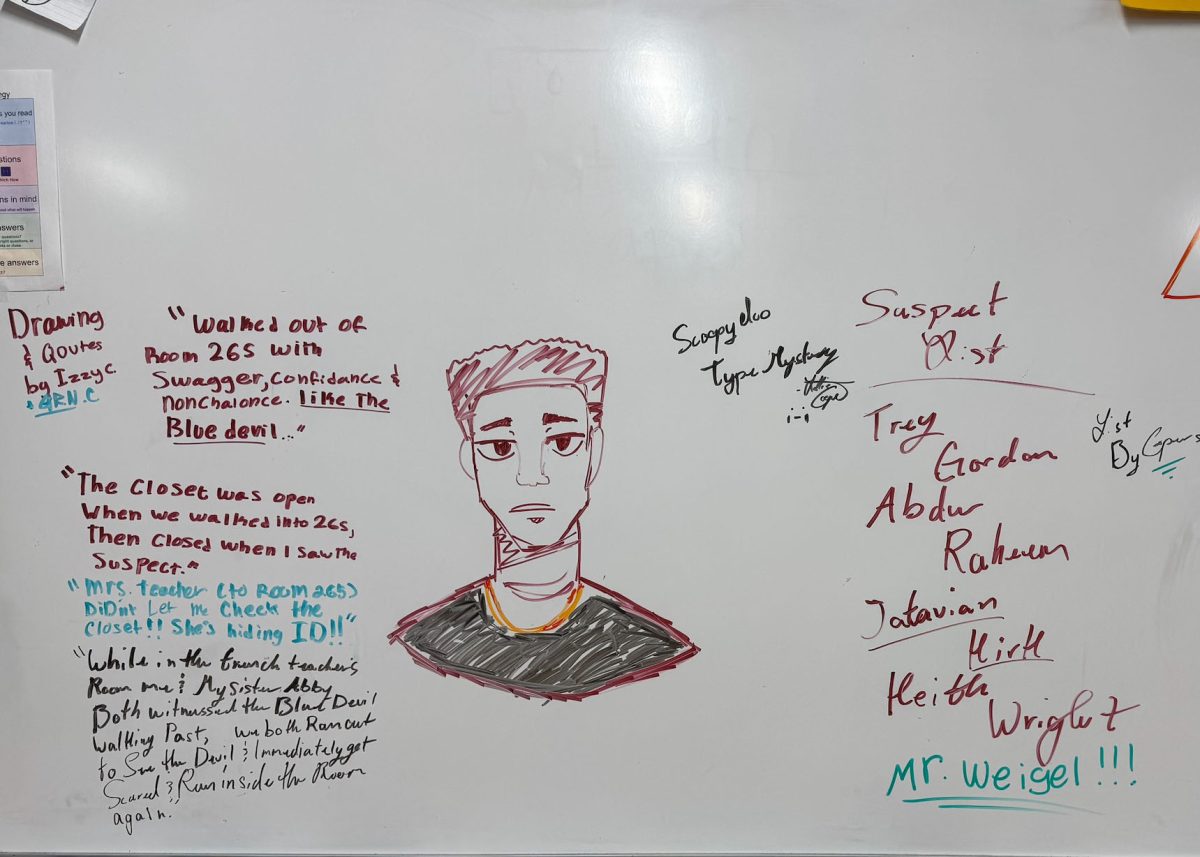 egy
s you read
stions
ns in mind
swers
e answers
Drawing
& Qoutes
by Izzy C
& GRN.C
"Walked out of
Room 265 with
Swagger, Confidance &
nonchalonce. Like The
Blue devil..."
"The Closet was open
When we walked into 265,
Then Closed when I saw The
Suspect."
"Mrs. teacher (to Room 265)
DiDn't Let me Check the
Closet!! She's hiding ID!!"
"While in the french teacher's
Room me & My sister Abby
Both witnessed the Blue Devil
walking Past, we both Ran out
to See the Devil & Immediately got
Scared & Run inside the Room
again."
Scoopy doo
Type Mystery
Suspect
List
Trey
Gordon
Abdur
Raheem
Jatavian
Hirth
Keith
Wright
Mr. Weigel!!!
List
By